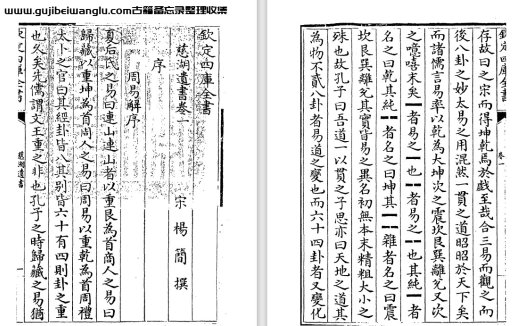 www.gujibeiwanglu.com古籍备忘录整理收集
欽定四庫全書
慈湖遺書卷一
宋 楊簡 撰
序
周易解序
夏后氏之易曰連山連山者以重艮為首商人之易曰
歸藏以重坤為首周人之易曰周易以重乾為首周禮
太卜之官曰其經卦皆八其別皆六十有四則卦之重
也久矣先儒謂文王重之非也孔子之時歸藏之易猶
欽定四庫全書
慈湖遺書
存故曰之宋而得坤乾焉於戲至哉合三易而觀之而
後八卦之妙太易之用混然一貫之道昭昭於天下矣
而諸儒言易率以乾為大坤次之震坎艮巽離兌又次
之噫嘻末矣⚊者易之⚊也⚋者易之⚋也其純⚊者
名之曰乾其純⚋者名之曰坤其⚊⚋雜者名之曰震
坎艮巽離兌其實皆易之異名初無本末精粗大小之
殊也故孔子曰吾道一以貫之子思亦曰天地之道其
為物不貳八卦者易道之變也而六十四卦者又變化
欽定四庫全書
卷一